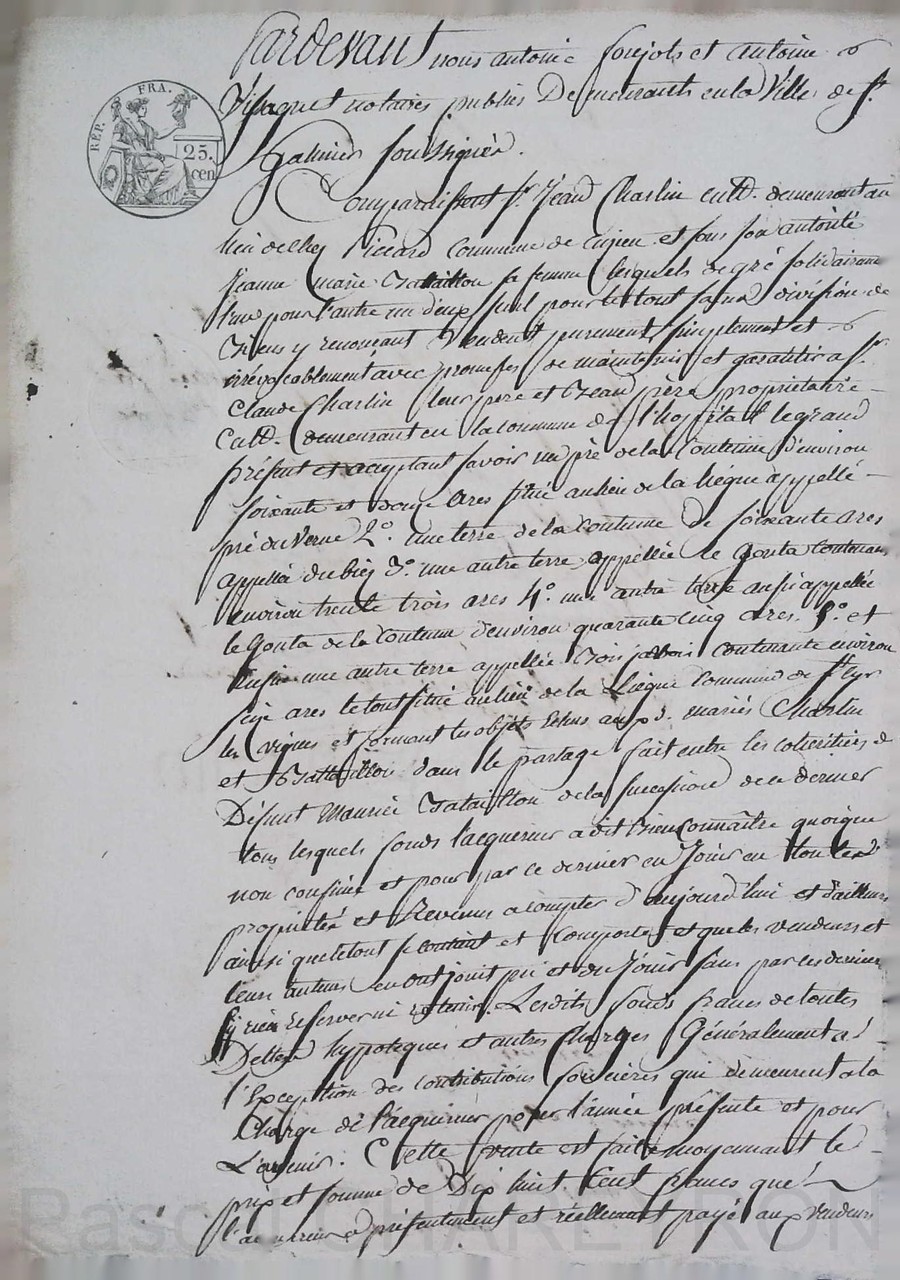 RÉP. FRA.
25. cen
Pardevant nous antoine soujols et antoine
notaires publics Demeurants en la Ville de St.
Galmier soussignés.
Comparaissent Sr. Jean Charlin cult. demeurant au
lieu de chez Piccard Commune de Cuzieu et sous son autorité
Jeanne marie Bataillon sa femme lesquels de gré solidairement
l'un pour l'autre un deux seul pour le tout sans division de
Biens y renonceant Vendent purement simplement et
irrévocablement avec promesse de maintenir et garantir a Sr.
Claude Charlin leur père et Beau père propriétaire
Cult. demeurant en la commune de l'hospital le grand
présent et aceptant savoir un pré de la Contenue d'environ
soixante et douze ares situé au lieu de la liègue appellé
pré du Verne 2°. une terre de la contenue de soixante ares
appellée du bief 3°. une autre terre appellée le gonta Contenan
environ trente trois ares 4°. une autre terre aussi appellée
le Gonta de la Contenue d'environ quarante cinq ares. 5°. et
enfin une autre terre appellée contenante environ
seize ares le tout situé au lieu de la Liègue Commune de St Cyr
les vignes et formant les objets échus aux d. mariés Charlin
et Battaillon dans le partage fait entre les cohéritiers de
Défunt Maurice Bataillon de la succession de ce dernier
tous lesquels fonds l'acquereur a dit Bien Connaître quoique
non confinés et pour par ce dernier en Jouir en toutes
propriétés et Revenus a compter d'aujourd'hui et d'ailleurs
ainsi que le tout se contient et Comporte et que les vendeurs et
leurs auteurs en ont jouit pu et du Jouir sans par ces derniers
y rien reserver ni retenir. Lesdits fonds francs de toutes
Dettes hypoteques et autres Charges Généralement a
l'Exception des contributions foncières qui demeurent a la
Charge de l'acquereur pour l'année présente et pour
L'avenir. Cette vente est faite moyennant le
prix et somme de Dix huit Cent francs que
l'acquereur a présentement et réellement payé aux vendeurs
Pascal CHARETRON